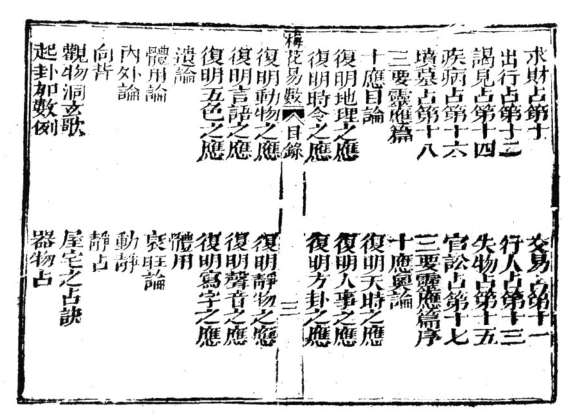 求財占第十
交易占第十一
出行占第十二
行人占第十三
謁見占第十四
失物占第十五
疾病占第十六
官訟占第十七
墳墓占第十八
三要靈應篇序
三要靈應篇
十應奧論
十應目論
復明天時之應
復明地理之應
復明人事之應
復明時令之應
復明方卦之應
梅花易數 目錄 三
復明動物之應
復明靜物之應
復明言語之應
復明聲音之應
復明五色之應
復明寫字之應
遺論
體用
體用論
衰旺論
內外論
動靜
向背
靜占
觀物洞玄歌
屋宅之占訣
起卦加數例
器物占